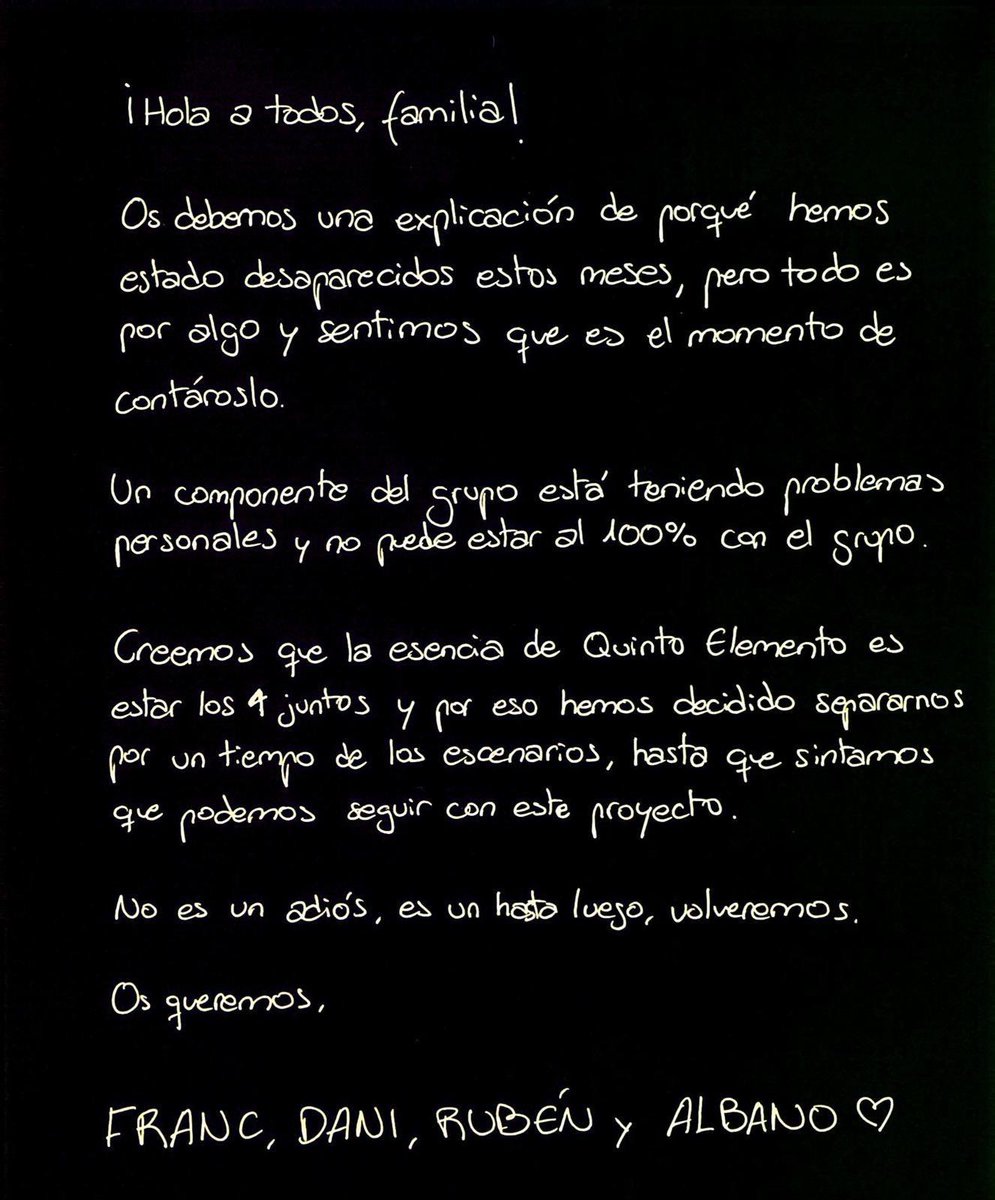 ¡Hola a todos, familia!
Os debemos una explicación de porqué hemos
estado desaparecidos estos meses, pero todo es
por algo y sentimos que es el momento de
contároslo.
Un componente del grupo está teniendo problemas
personales y no puede estar al 100% con el grupo.
Creemos que la esencia de Quinto Elemento es
estar los 4 juntos y por eso hemos decidido separarnos
por un tiempo de los escenarios, hasta que sintamos
que podemos seguir con este proyecto.
No es un adiós, es un hasta luego, volveremos.
Os queremos,
FRANC, DANI, RUBÉN y ALBANO ♡